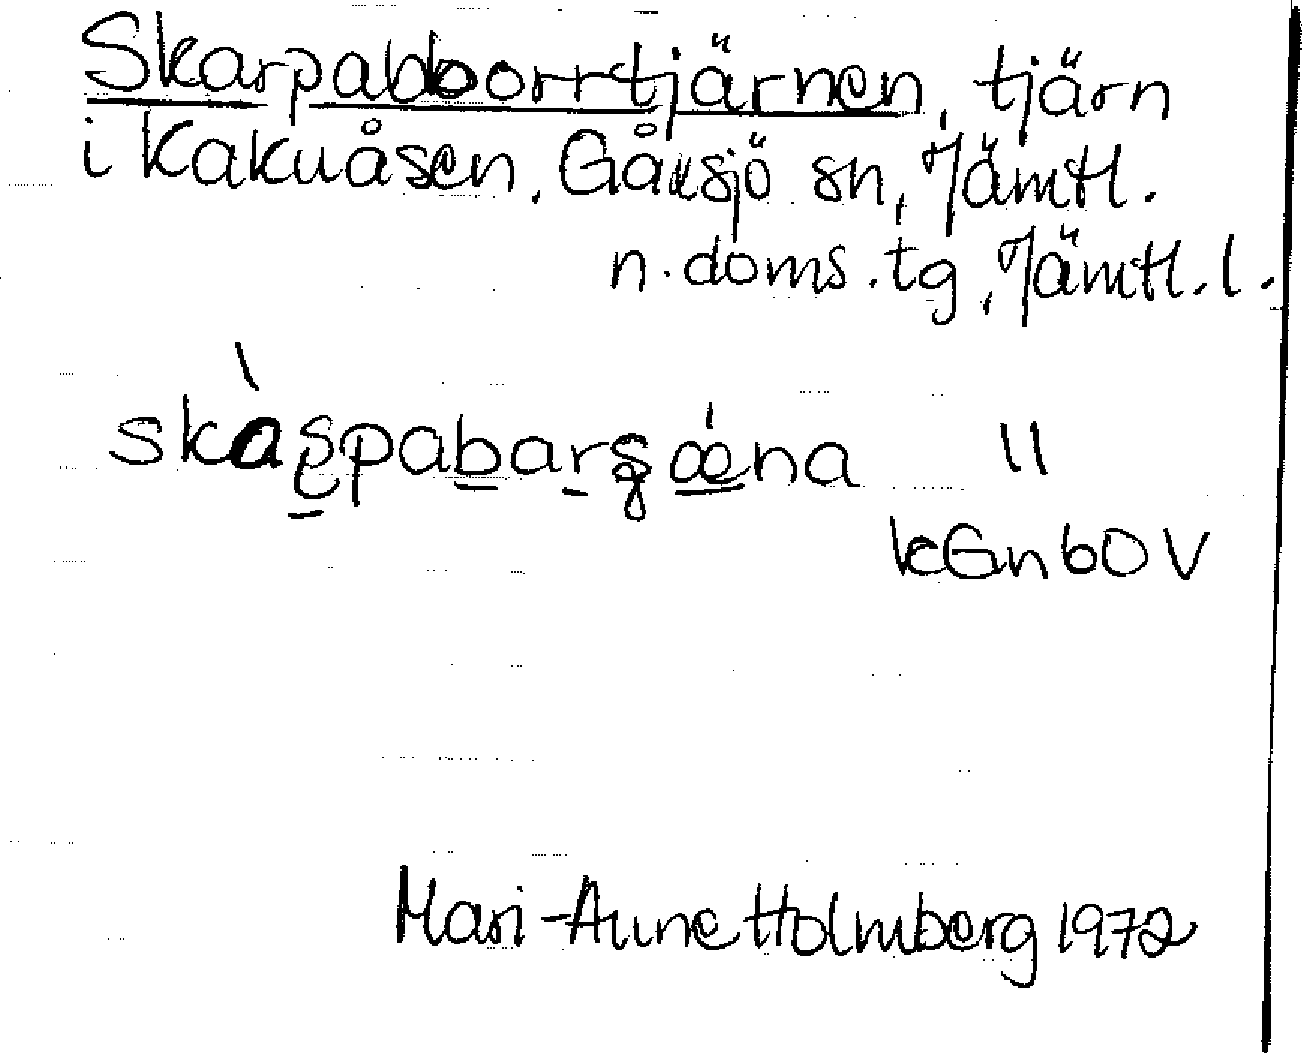 Skarpabborrtjärnen, tjärn
i Kakuåsen, Gåxsjö sn, Jämtl.
n. doms. tg, Jämtl. l.
"
kGnbOV
Mari-Anne Holmberg 1972